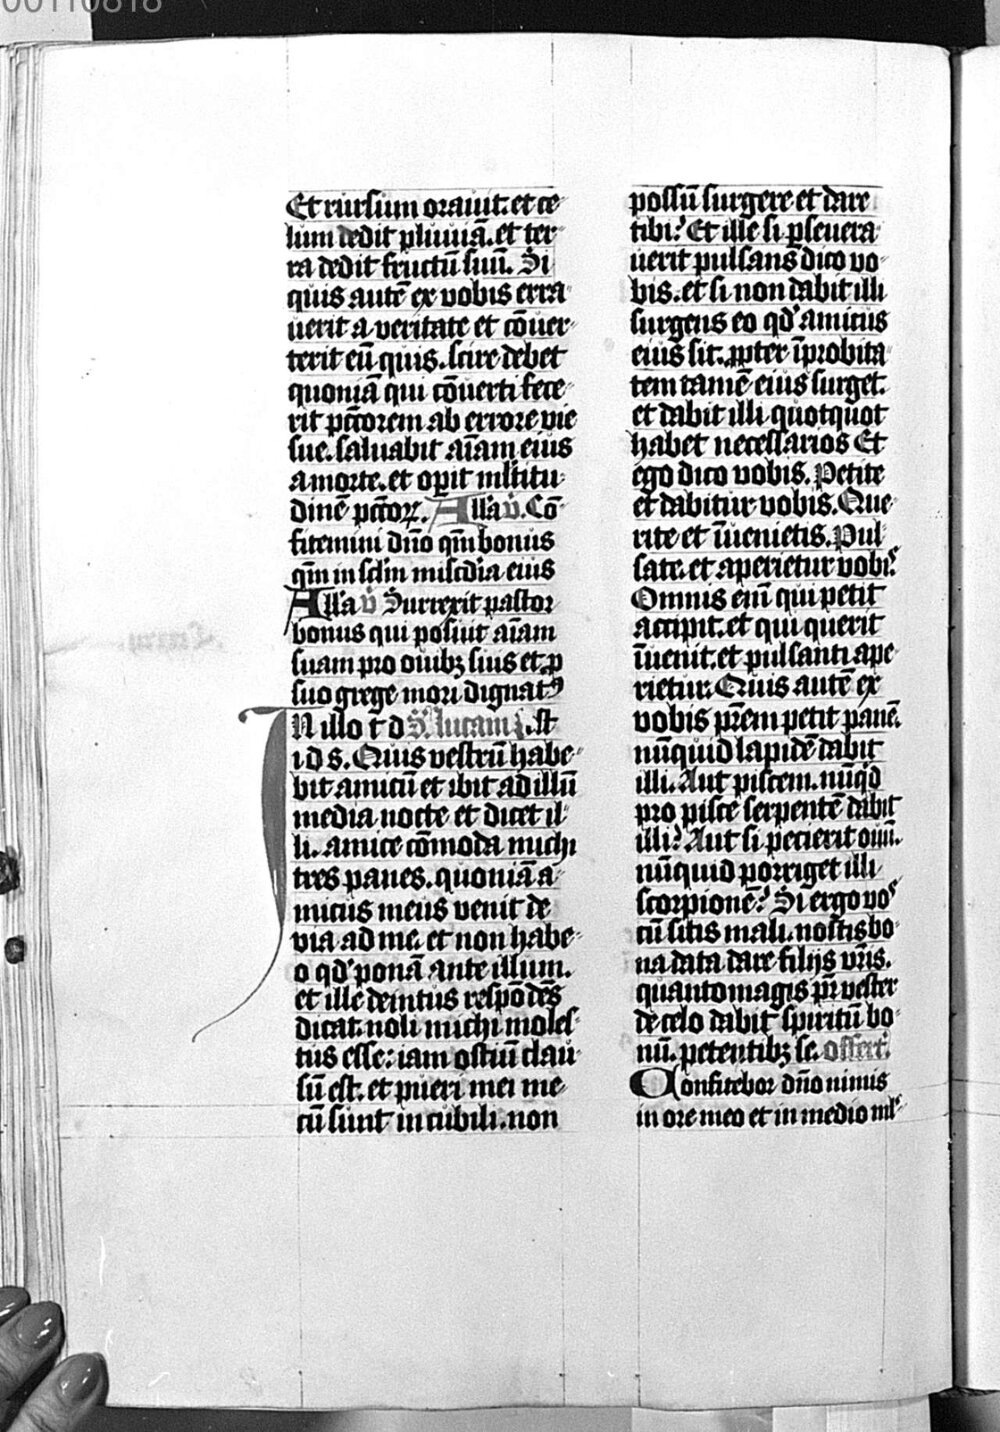 00110818
Et rursum orauit. et ce
lum dedit pluuiā. et ter
ra dedit fructū suū. Si
quis autē ex vobis erra
uerit a veritate et cōuer
terit eū quis. scire debet
quoniā qui cōuerti fece
rit pctōrem ab errore vie
sue. saluabit aīam eius
a morte. et opit mltitu
dinē pctōrꝝ. Alla v̄. Cō
fitemini dn̄o qm̄ bonus
qm̄ in sclm̄ miscdīa eius
Alla v̄ Surrexit pastor
bonus qui posuit aīam
suam pro ouibꝫ suis et ꝓ
suo grege mori dignatꝰ
In illo t d S. lucam. st
i d s. Quis vestrū habe
bit amicū et ibit ad illū
media nocte et dicet il
li. amice cōmoda michi
tres panes. quoniā a
micus meus venit de
via ad me. et non habe
o qd' ponā ante illum.
et ille deintus respōdēs
dicat. noli michi moles
tus esse: iam ostiū clau
sū est. et pueri mei me
cū sunt in cubili. non
possū surgere et dare
tibi? Et ille si ꝑseuera
uerit pulsans dico vo
bis. et si non dabit illi
surgens eo qd' amicus
eius sit. ꝓpter īprobita
tem tamē eius surget.
et dabit illi quotquot
habet necessarios Et
ego dico vobis. Petite
et dabitur vobis. Que
rite et īuenietis. Pul
sate. et aperietur vobis.
Omnis eni qui petit
accipit. et qui querit
īuenit. et pulsanti ape
rietur. Quis autē ex
vobis pr̄em petit panē.
nūquid lapidē dabit
illi. Aut piscem. nūqd
pro pisce serpentē dabit
illi? Aut si pecierit ouū.
nūquid porriget illi
scorpionē? Si ergo vos
cū sitis mali. nostis bo
na data dare filijs vr̄is.
quantomagis pr̄ vester
de celo dabit spiritū bo
nū. petentibꝫ se. offert.
Confitebor dn̄o nimis
in ore meo et in medio ml